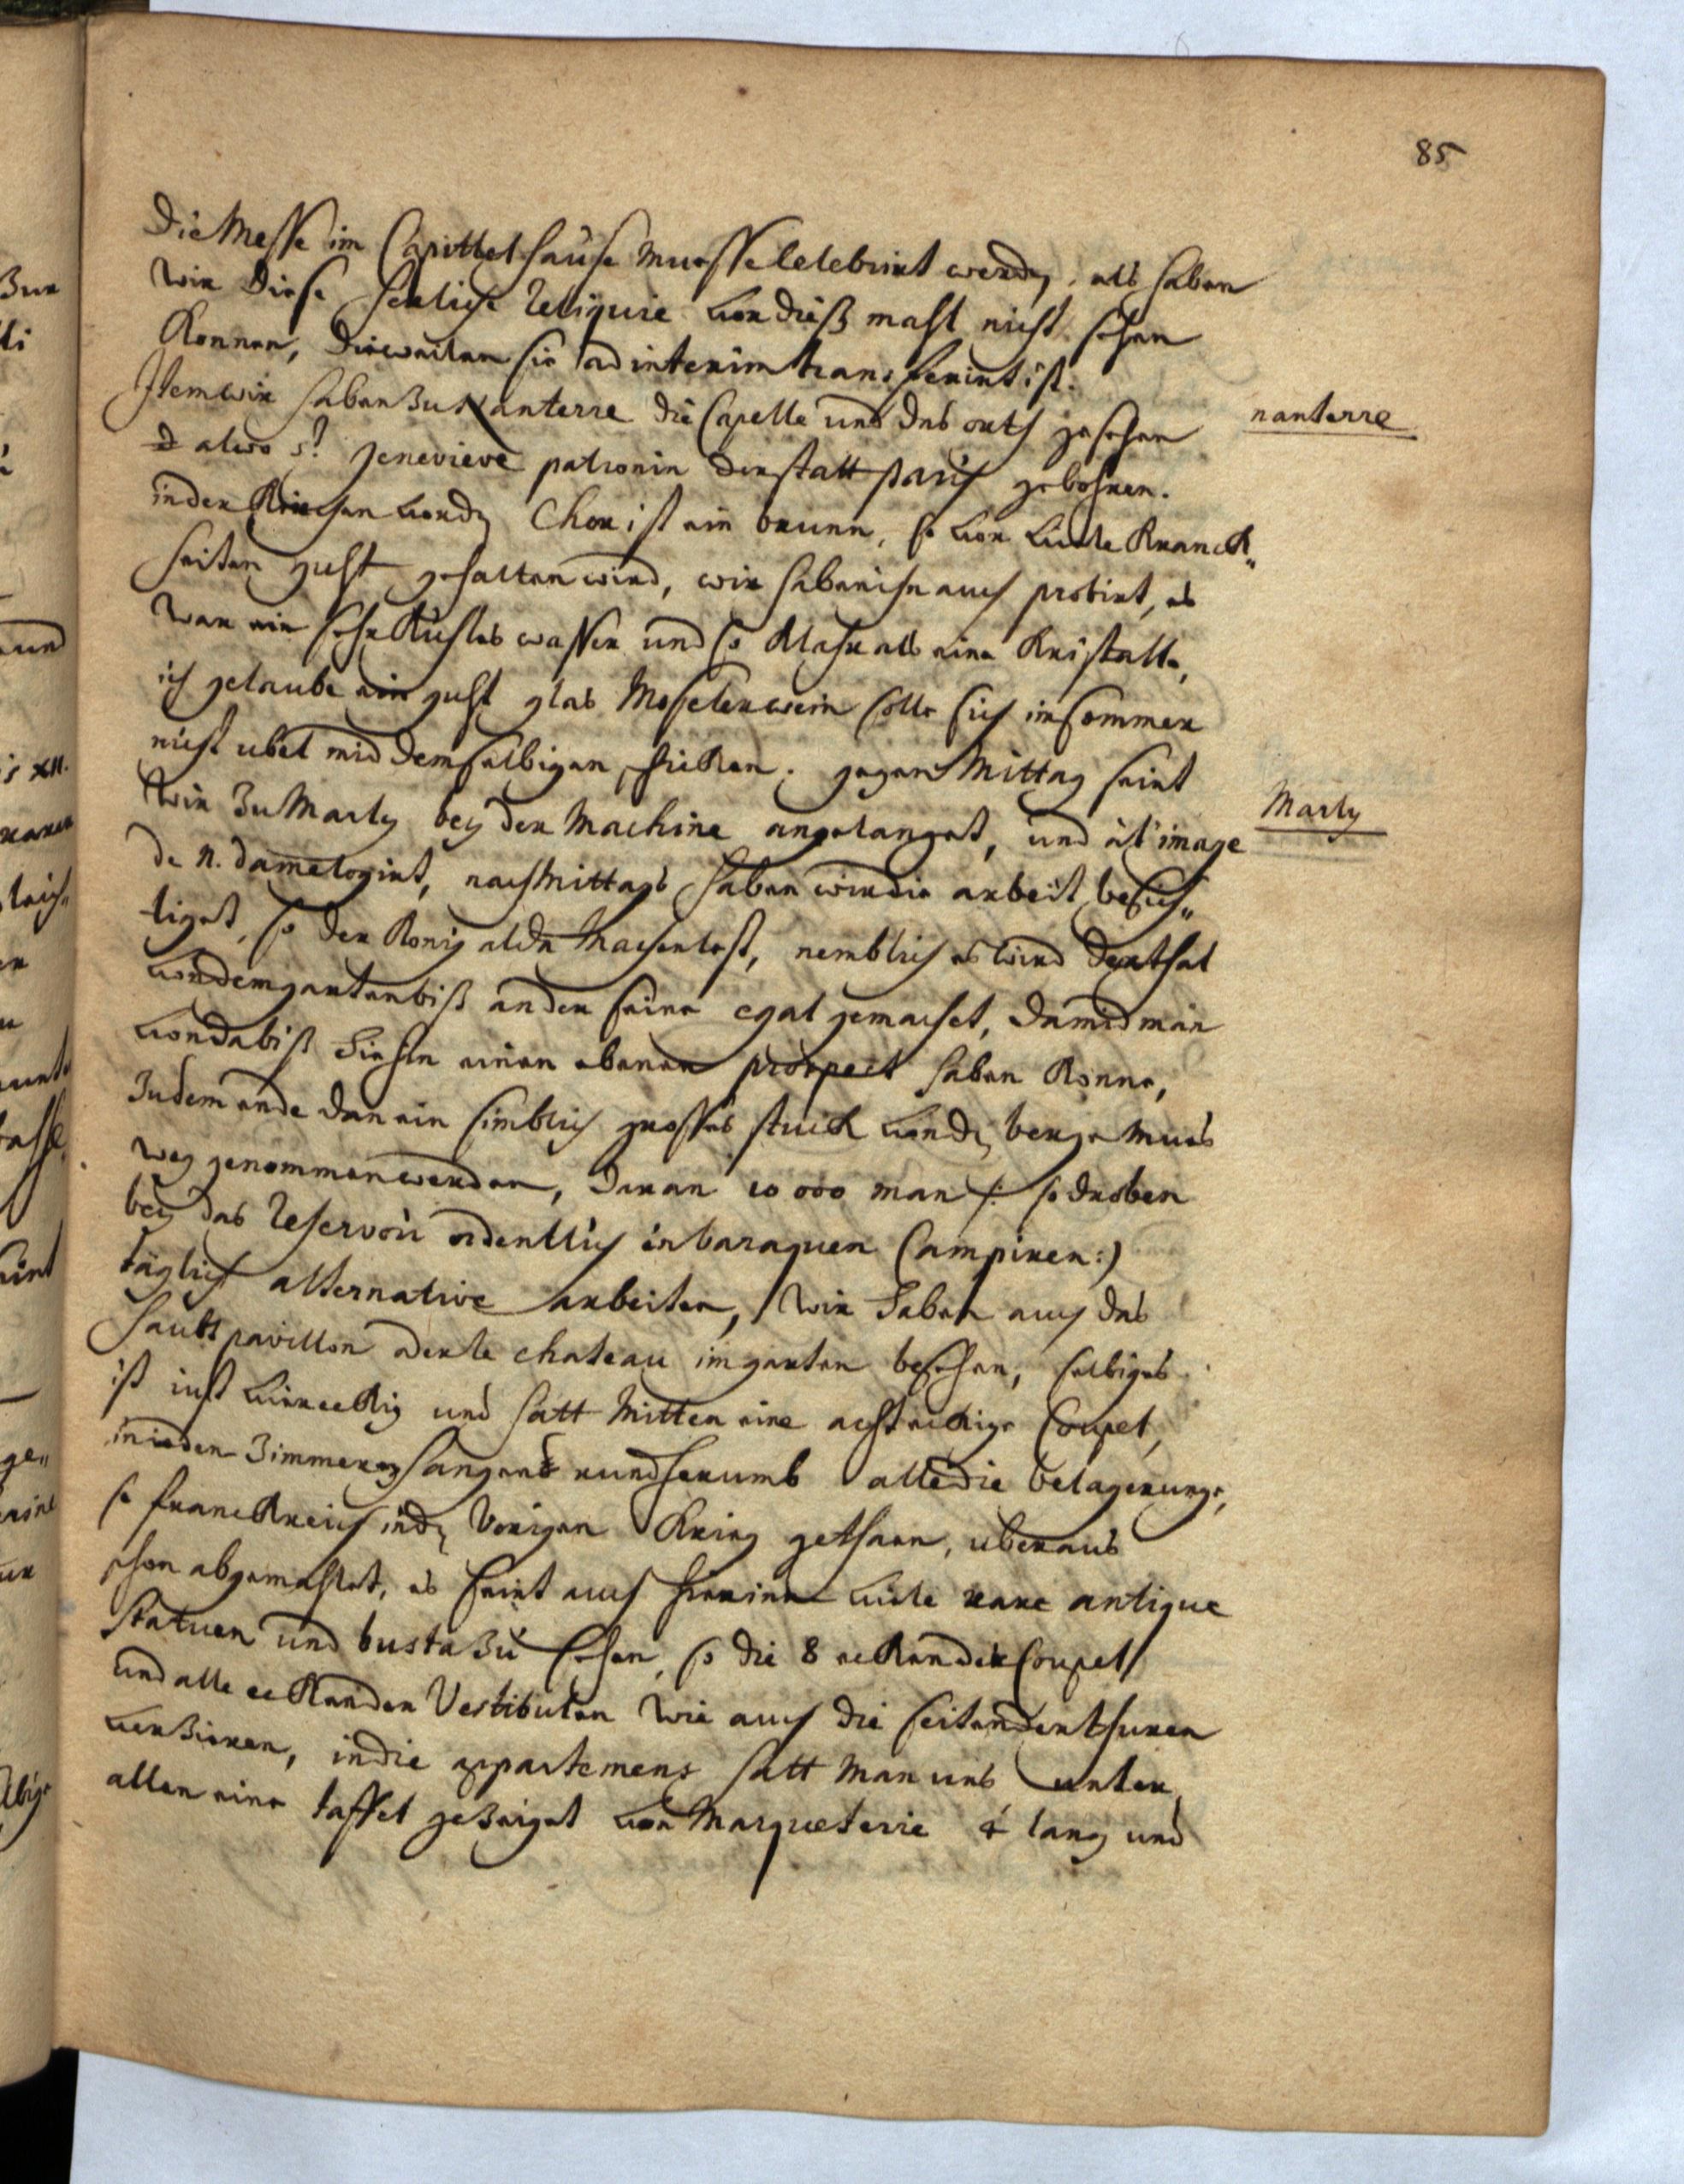 85
Die Messe im Capittelhause muesse celebrirt werden, als haben
wir diese herliche reliquie vor dieß mahl nicht sehen
konnen, dieweilen sie ad interim transferirt ist.
Item wir haben zu Nanterre die Capelle und das orth gesehen
nanterre
alwo st genevieve patronin der statt Pariß gebohren.
in der Kirchen vor den Chor ist ein brunn, so vor viele kranck„
heiten guht gehalten wird, wir haben ihn auch probirt, es
war ein sehr kuhles wasser und so klahr als eine kristalle,
ich gelaube ein guht glas Moselerwein solle sich im sommer
nicht ubel mid demselbigen schicken. gegen Mittag seint
wir zu Marly bey der Machine angelanget, und à l'image
Marly
de n. dame logirt, nachmittags haben wir die arbeit besich„
tiget, so der Konig alda machen lest, nemblich es wird der thal
von dem garten biß an der seine egal gemachet, damid man
von da biß hiehin einen ebenen prospect haben konne,
zu dem ende dan ein simblich grosses stuck von den berge mues
weg genommen werden, daran 10 000 man /: so droben
bey das reservoir ordentlich in baraquen Campiren :)
täglich alternative arbeiten, wir haben auch das
haubt pavillon oder le chateau im garten besehen, selbiges
ist just viereckig und hatt mitten eine achteckige Coupel,
in ieden zimmeren hangen rundherumb alle die belagerunge,
so franckreich in den vorigen krieg gethaen, uberaus
schon abgemahlet, es seint auch hierinne viele rare antique
statuen und busta zu sehen, so die 8 ecken der Coupel
und alle ecken der Vestibulen wie auch die seiten der thuren
verzieren, in die appartemens hatt man uns unter
allen eine taffel gezeiget von Marqueterie 4 lang und